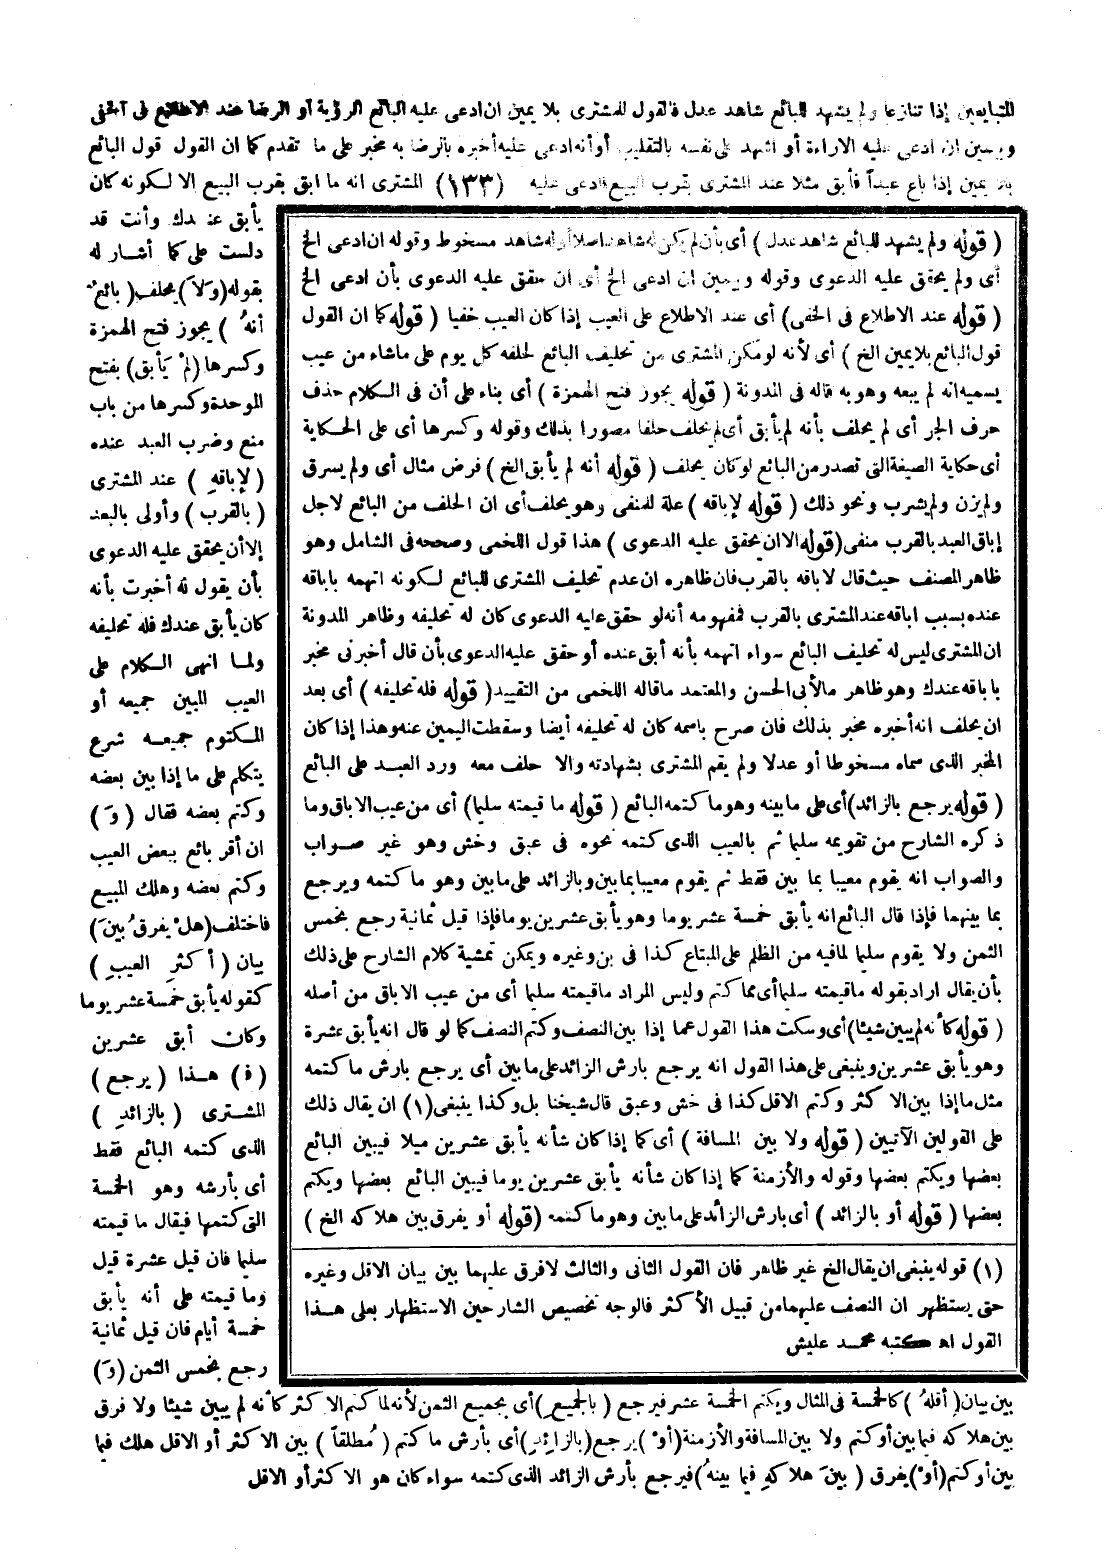 المتبايعين إذا تنازعا ولم يشهد للبائع شاهد عدل فالقول للمشترى بلا يمين ان ادعى عليه البائع الرؤية أو الرضا عند الاطلاع فى الخفى
وبيمين ان ادعى عليه الاراءة أو اشهد على نفسه بالتقليب أو أنه ادعى عليه أخبره بالرضا به مخبر على ما تقدم كما ان القول قول البائع
بلا يمين إذا باع عبداً فأبق مثلا عند المشترى بقرب البيع فادعى عليه (١٣٣) المشترى انه ما ابق بقرب البيع الا لكونه كان
يأبق عندك وأنت قد
دلست على كما أشار له
بقوله (وَلاَ) يحلف (بائعٌ
أنهُ ) يجوز فتح الهمزة
وكسرها (لمْ يَأبق) بفتح
الموحدة وكسرها من باب
منع وضرب العبد عنده
(لإباقهِ ) عند المشترى
( بالقرب ) وأولى بالبعد
إلا أن يحقق عليه الدعوى
بأن يقول له أخبرت بأنه
كان يأبق عندك فله تحليفه
ولما انهى الكلام على
العيب المبين جميعه أو
المكتوم جميعه شرع
يتكلم على ما إذا بين بعضه
وكتم بعضه فقال (وَ)
ان أقر بائع ببعض العيب
وكتم بعضه وهلك المبيع
فاختلف (هلْ يفرقُ بينَ)
بيان (أكثرِ العيبِ )
كقوله يأبق خمسة عشر يوما
وكان أبق عشرين
(فـ) هذا (يرجع )
المشترى ( بالزائدِ )
الذى كتمه البائع فقط
أى بأرشه وهو الخمسة
التى كتمها فيقال ما قيمته
سليما فان قيل عشرة قيل
وما قيمته على أنه يأبق
خمسة أيام فان قيل ثمانية
رجع بخمس الثمن (وَ)
( قوله ولم يشهد للبائع شاهد عدل ) أى بأن لم يكن له شاهد اصلا أو له شاهد مسخوط وقوله ان ادعى الخ
أى ولم يحقق عليه الدعوى وقوله وبيمين ان ادعى الخ أى ان حقق عليه الدعوى بأن ادعى الخ
( قوله عند الاطلاع فى الخفى ) أى عند الاطلاع على العيب إذا كان العيب خفيا ( قوله كما ان القول
قول البائع بلا يمين الخ ) أى لأنه لو مكن المشترى من تحليف البائع لحلفه كل يوم على ما شاء من عيب
يسميه انه لم يبعه وهو به قاله فى المدونة ( قوله يجوز فتح الهمزة ) أى بناء على أن فى الكلام حذف
حرف الجر أى لم يحلف بأنه لم يأبق أى لم يحلف حلفا مصورا بذلك وقوله وكسرها أى على الحكاية
أى حكاية الصيغة التى تصدر من البائع لو كان يحلف ( قوله أنه لم يأبق الخ ) فرض مثال أى ولم يسرق
ولم يزن ولم يشرب ونحو ذلك ( قوله لإباقه ) علة للمنفى وهو يحلف أى ان الحلف من البائع لاجل
إباق العبد بالقرب منفى (قوله الا ان يحقق عليه الدعوى ) هذا قول اللخمى وصححه فى الشامل وهو
ظاهر المصنف حيث قال لاباقه بالقرب فان ظاهره ان عدم تحليف المشترى للبائع لكونه اتهمه باباقه
عنده بسبب اباقه عند المشترى بالقرب فمفهومه أنه لو حقق عليه الدعوى كان له تحليفه وظاهر المدونة
ان المشترى ليس له تحليف البائع سواء اتهمه بأنه أبق عنده أو حقق عليه الدعوى بأن قال أخبرنى مخبر
باباقه عندك وهو ظاهر ما لأبى الحسن والمعتمد ما قاله اللخمى من التقييد ( قوله فله تحليفه ) أى بعد
ان يحلف انه أخبره مخبر بذلك فان صرح باسمه كان له تحليفه أيضا وسقطت اليمين عنه وهذا إذا كان
المخبر الذى سماه مسخوطا أو عدلا ولم يقم المشترى بشهادته والا حلف معه ورد العبد على البائع
( قوله يرجع بالزائد ) أى على ما بينه وهو ما كتمه البائع ( قوله ما قيمته سليما) أى من عيب الاباق وما
ذكره الشارح من تقويمه سليما ثم بالعيب الذى كتمه نحوه فى عبق وخش وهو غير صواب
والصواب انه يقوم معيبا بما بين فقط ثم يقوم معيبا بما بين وبالزائد على ما بين وهو ما كتمه ويرجع
بما بينهما فإذا قال البائع انه يأبق خمسة عشر يوما وهو يأبق عشرين يوما فإذا قيل ثمانية رجع بخمس
الثمن ولا يقوم سليما لما فيه من الظلم على المبتاع كذا فى بن وغيره ويمكن تمشية كلام الشارح على ذلك
بأن يقال اراد بقوله ما قيمته سليما أى مما كتم وليس المراد ما قيمته سليما أى من عيب الاباق من أصله
( قوله كأنه لم يبين شيئا) أى وسكت هذا القول عما إذا بين النصف وكتم النصف كما لو قال انه يأبق عشرة
وهو يأبق عشرين وينبغى على هذا القول انه يرجع بارش الزائد على ما بين أى يرجع بارش ما كتمه
مثل ما إذا بين الاكثر وكتم الاقل كذا فى خش وعبق قال شيخنا بل وكذا ينبغى (١) ان يقال ذلك
على القولين الآتيين ( قوله ولا بين المسافة ) أى كما إذا كان شأنه يأبق عشرين ميلا فيبين البائع
بعضها ويكتم بعضها وقوله والأزمنة كما إذا كان شأنه يأبق عشرين يوما فيبين البائع بعضها ويكتم
بعضها ( قوله أو بالزائد ) أى بارش الزائد على ما بين وهو ما كتمه (قوله أو يفرق بين هلاكه الخ )
(١) قوله ينبغى ان يقال الخ غير ظاهر فان القول الثانى والثالث لا فرق عليهما بين بيان الاقل وغيره
حتى يستظهر ان النصف عليهما من قبيل الأكثر فالوجه تخصيص الشارحين الاستظهار بعلى هذا
القول اه كتبه محمد عليش
بين بيان ( أقلهُ ) كالخمسة فى المثال ويكتم الخمسة عشر فيرجع ( بالجميعِ ) أى بجميع الثمن لأنه لما كتم الاكثر كأنه لم يبين شيئا ولا فرق
بين هلاكه فيما بين أو كتم ولا بين المسافة والأزمنة (أوْ ) يرجع (بالزائدِ ) أى بأرش ما كتم ( مُطلقاً ) بين الاكثر أو الاقل هلك فيما
بين أو كتم (أوْ) يفرق ( بينَ هلاكهِ فيما بينهُ ) فيرجع بأرش الزائد الذى كتمه سواء كان هو الاكثر أو الاقل